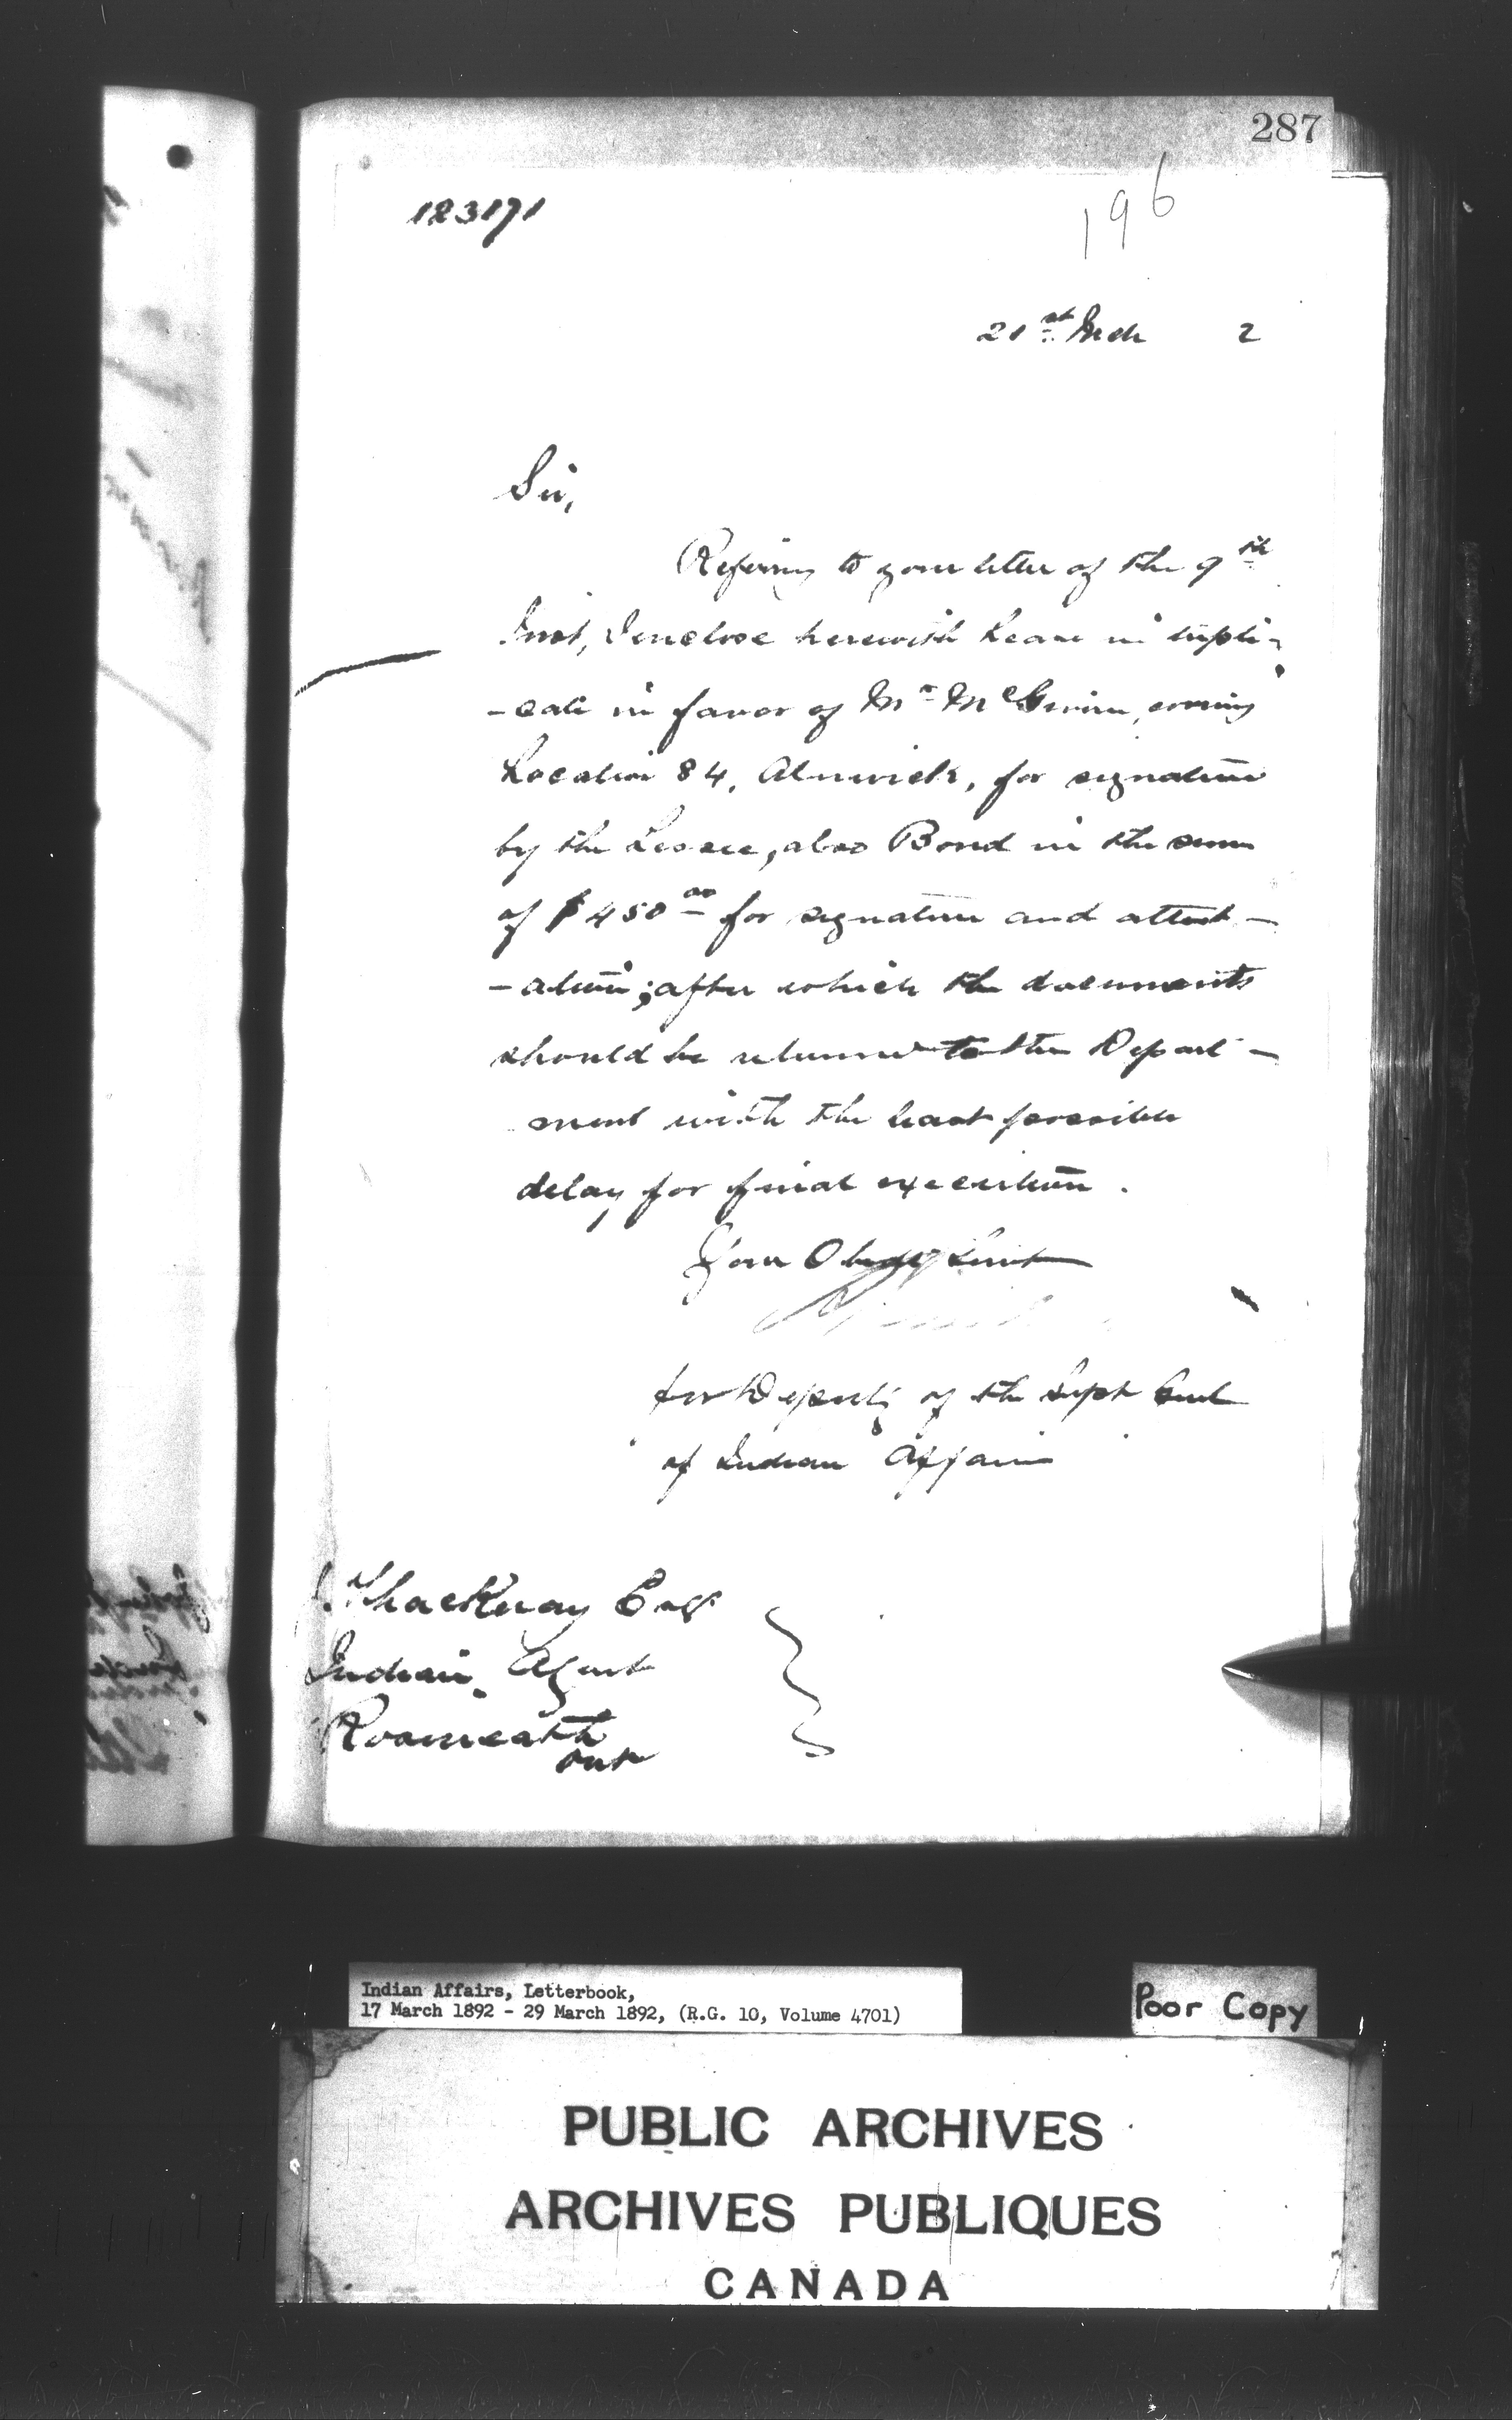 287
123171
196
21st Mch 2
Sir,
Referring to your letter of the 9th
Inst, I enclose herewith Lease in tripli-
-cate in favor of Mr
Location 84, Alnwick, for signature
by the Lessee, also Bond in the sum
of $450.00 for signature and attest-
-ation; after which the documents
should be returned to the Depart-
ment with the least possible
delay for final execution.
Your Obedt Servt
for Deputy of the Supt Genl
of Indian Affairs
J. Thackeray Esq
Indian Agent
Roseneath
Ont
Indian Affairs, Letterbook,
17 March 1892 - 29 March 1892, (R.G. 10, Volume 4701)
Poor Copy
PUBLIC ARCHIVES
ARCHIVES PUBLIQUES
CANADA